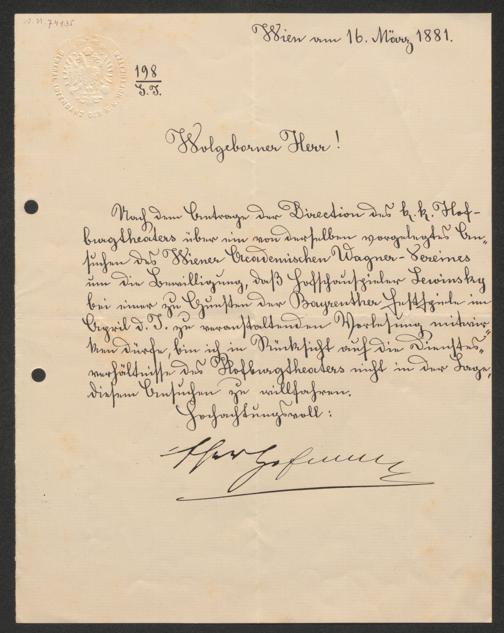 Wien am 16. März 1881.
198
G. I.
Wolgeborner Herr!
Nach dem Antrage der Direction des k. k. Hof-
burgtheaters über ein von derselben vorgelegtes An-
suchen des Wiener Academischen Wagner-Vereines
um die Bewilligung, daß Hofschauspieler Lewinsky
bei einer zu Gunsten der Bayreuther Festspiele im
April d. J. zu veranstaltenden Vorlesung mitwir-
ken dürfe, bin ich in Rücksicht auf die Dienstes-
verhältnisse des Hofburgtheaters nicht in der Lage,
diesem Ansuchen zu willfahren.
Hochachtungsvoll: